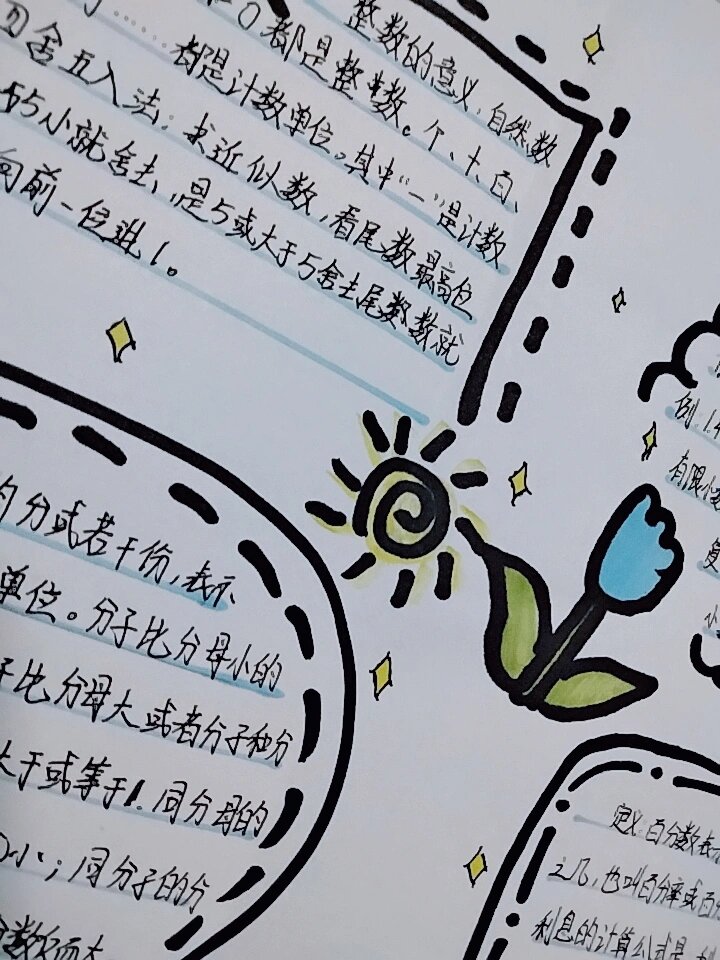 整数的意义，自然数
0都是整数。个、十、百、
……都是计数单位。其中“一”是计数
四舍五入法：求近似数，看尾数最高位
与5小就舍去，是5或大于5舍去尾数数就
向前一位进1。
的分或若干份，表示
单位。分子比分母小的
于比分母大或者分子和分
大于或等于1.同分母的
小；同分子的分
例:1.4
有限小
复
小
定义：百分数表
之几，也叫百分率或百分
利息的计算公式是